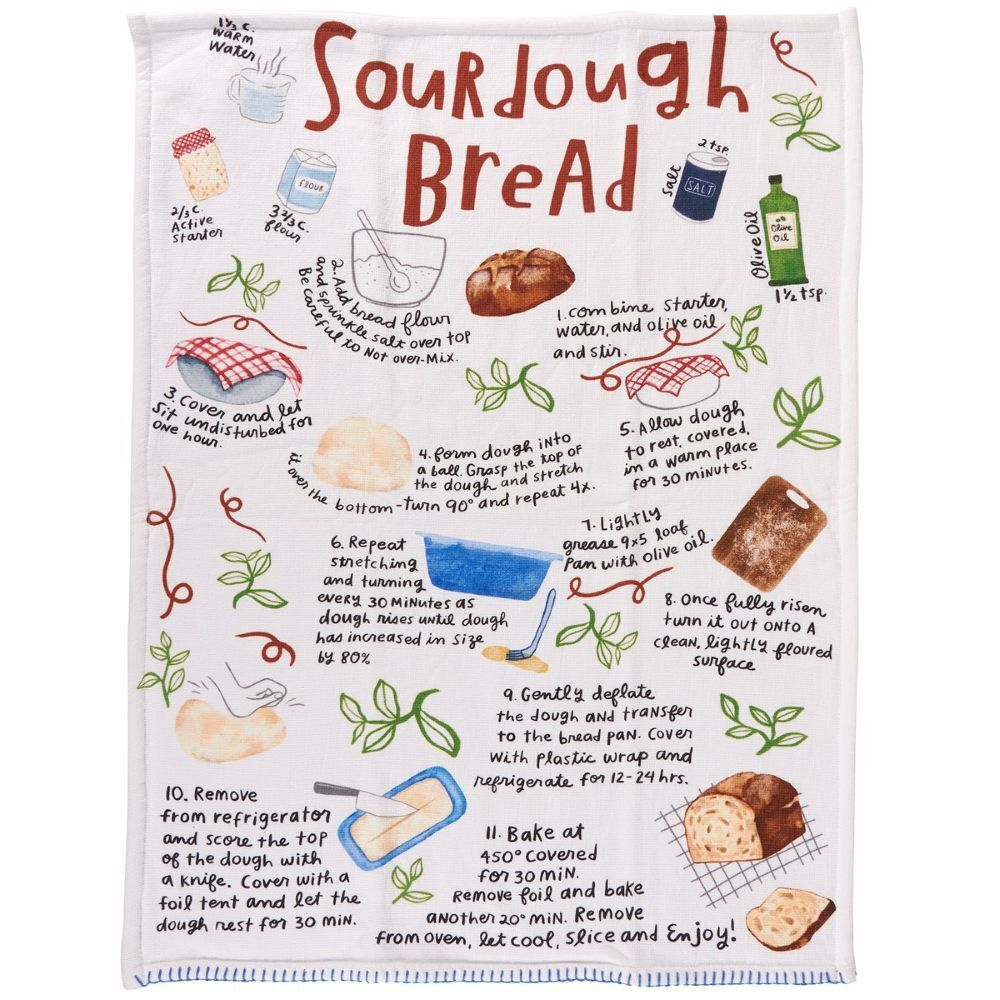 1⅓ c.
warm
water
Sourdough
Bread
2/3 c.
Active
starter
flour
3 2/3 c.
flour
2 tsp
salt
SALT
Olive Oil
Olive
Oil
1½ tsp.
1. combine starter,
water, and olive oil
and stir.
2. Add bread flour
and sprinkle salt over top
Be careful to Not over-Mix.
3. Cover and let
sit undisturbed for
one hour.
4. form dough into
a ball. Grasp the top of
the dough and stretch
it over the bottom - turn 90° and repeat 4x.
5. Allow dough
to rest, covered,
in a warm place
for 30 minutes.
6. Repeat
stretching
and turning
every 30 minutes as
dough rises until dough
has increased in size
by 80%
7. Lightly
grease 9x5 loaf
pan with olive oil.
8. Once fully risen
turn it out onto a
clean, lightly floured
surface
9. Gently deflate
the dough and transfer
to the bread pan. Cover
with plastic wrap and
refrigerate for 12-24 hrs.
10. Remove
from refrigerator
and score the top
of the dough with
a knife. Cover with a
foil tent and let the
dough rest for 30 min.
11. Bake at
450° covered
for 30 min.
Remove foil and bake
another 20° min. Remove
from oven, let cool, slice and Enjoy!